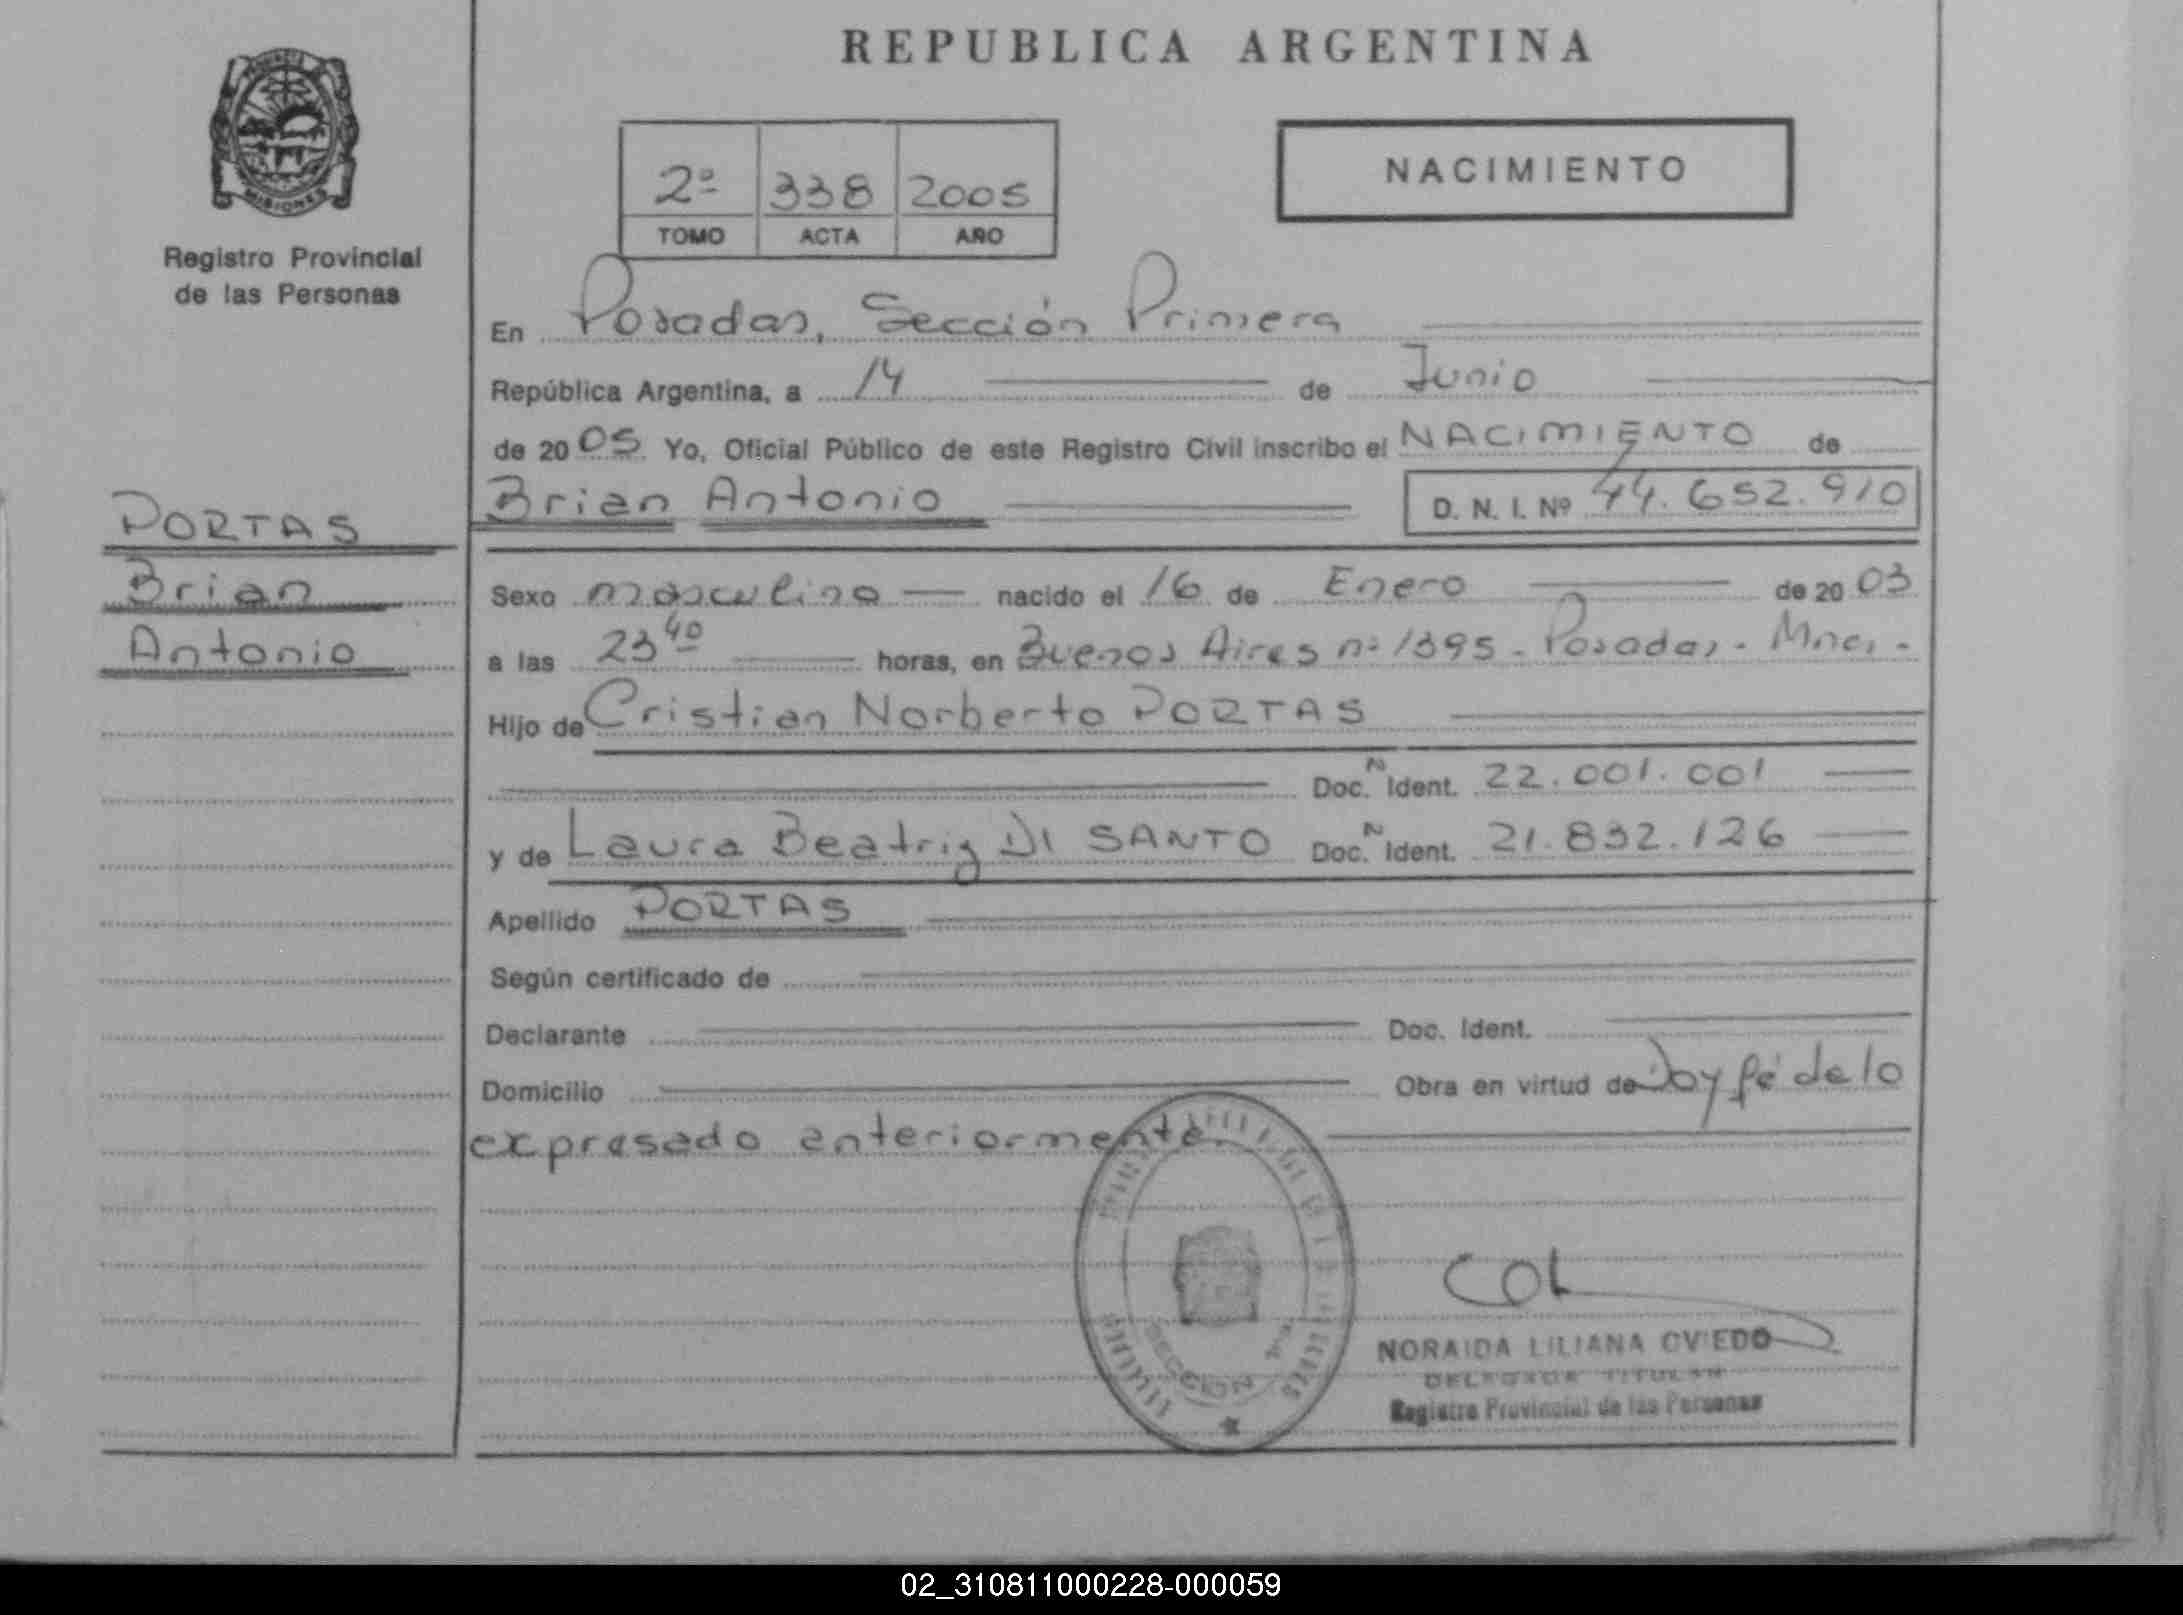 REPUBLICA ARGENTINA
MISIONES
Registro Provincial
de las Personas
2º 338 2005
TOMO ACTA AÑO
NACIMIENTO
En Posadas, Sección Primera
República Argentina, a 14 de Junio
de 2005 Yo, Oficial Público de este Registro Civil inscribo el NACIMIENTO de
Brian Antonio D. N. I. Nº 44.652.910
PORTAS
Brian
Antonio
Sexo masculino nacido el 16 de Enero de 2003
a las 23 40 horas, en Buenos Aires nº 1395 - Posadas - Mnes -
Hijo de Cristian Norberto PORTAS
Doc. N Ident. 22.001.001
y de Laura Beatriz DI SANTO Doc. N Ident. 21.832.126
Apellido PORTAS
Según certificado de
Declarante Doc. Ident.
Domicilio Obra en virtud de Doy fé de lo
expresado anteriormente.
SECCION
NORAIDA LILIANA OVIEDO
DELEGADA TITULAR
Registro Provincial de las Personas
02_310811000228-000059